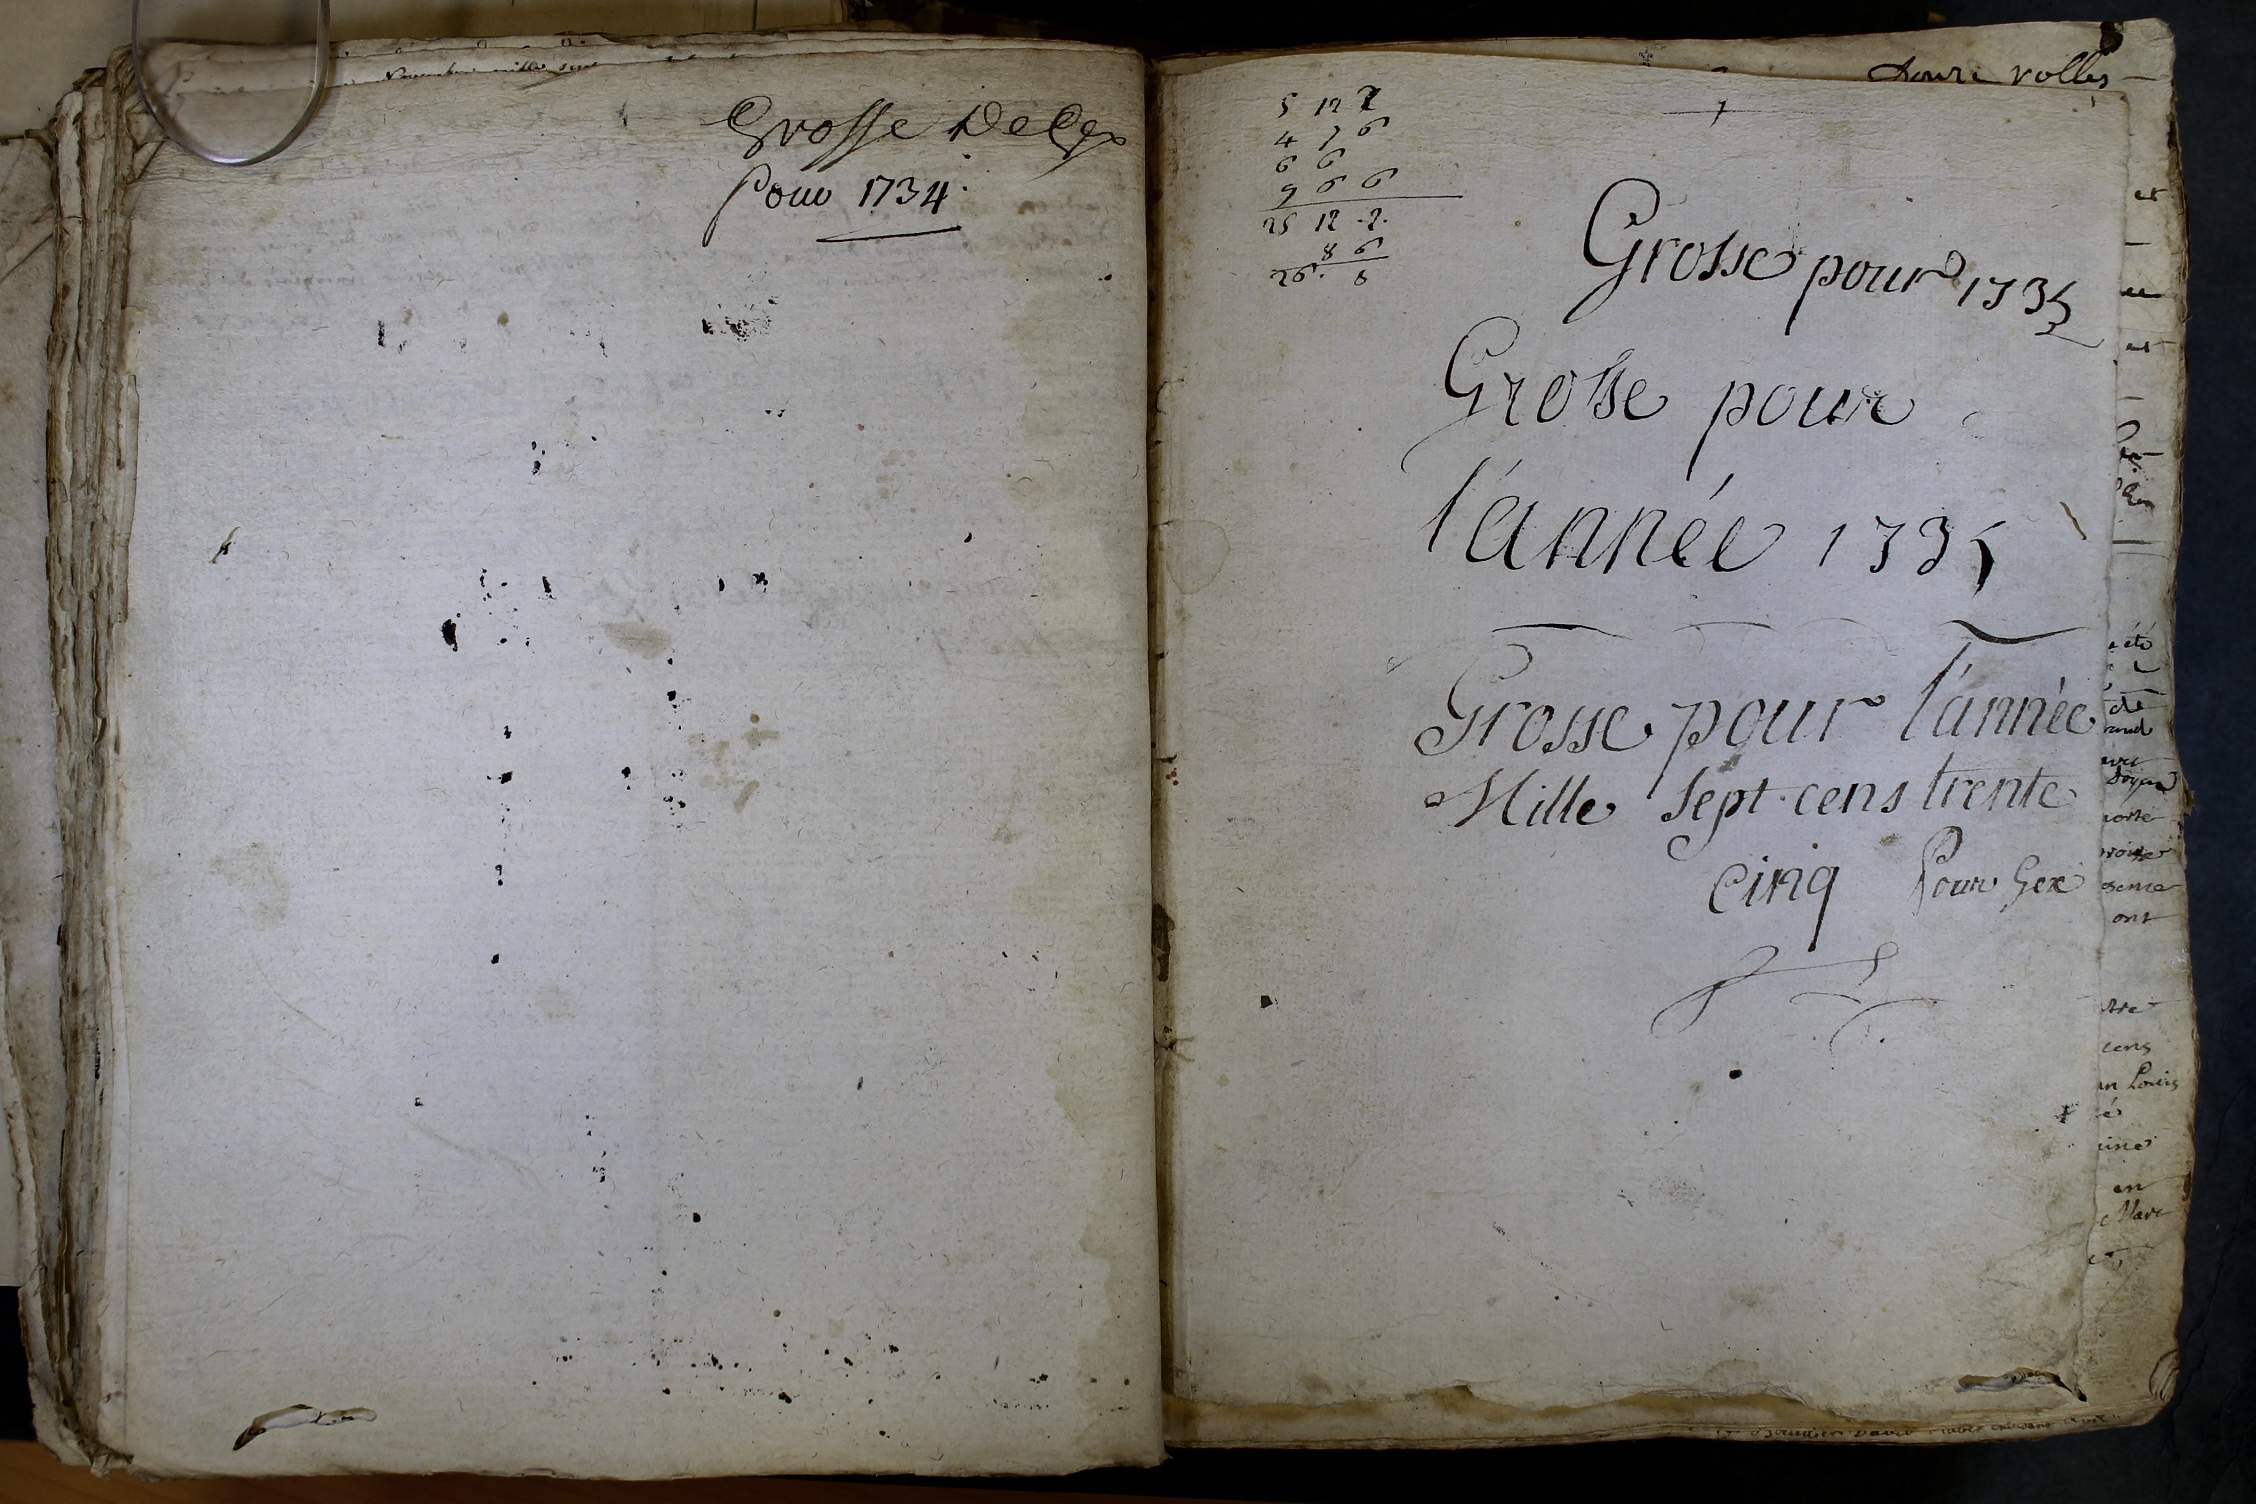 Grosse De Gex
Pour 1734
Douze rolles
5 12 2
4 7 6
6 6
9 6 6
25 12 2
8 6
26 8
Grosse pour 1735
Grosse pour
l'année 1735
Grosse pour l'année
Mille Sept cens trente
cinq Pour Gex
été
ont
cens
Louis
en
Marc